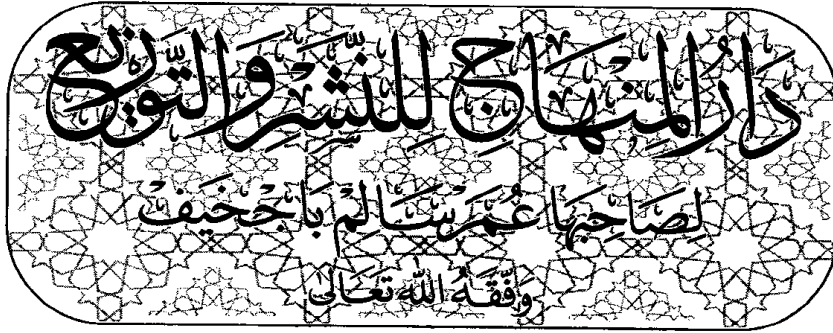 دَارُ المِنْهَاجِ لِلنَّشْرِ وَالتَّوْزِيعِ
لِصَاحِبِهَا عُمَر سَالِمْ بَاجْخَيفْ
وَفَّقَهُ اللهُ تَعَالَى